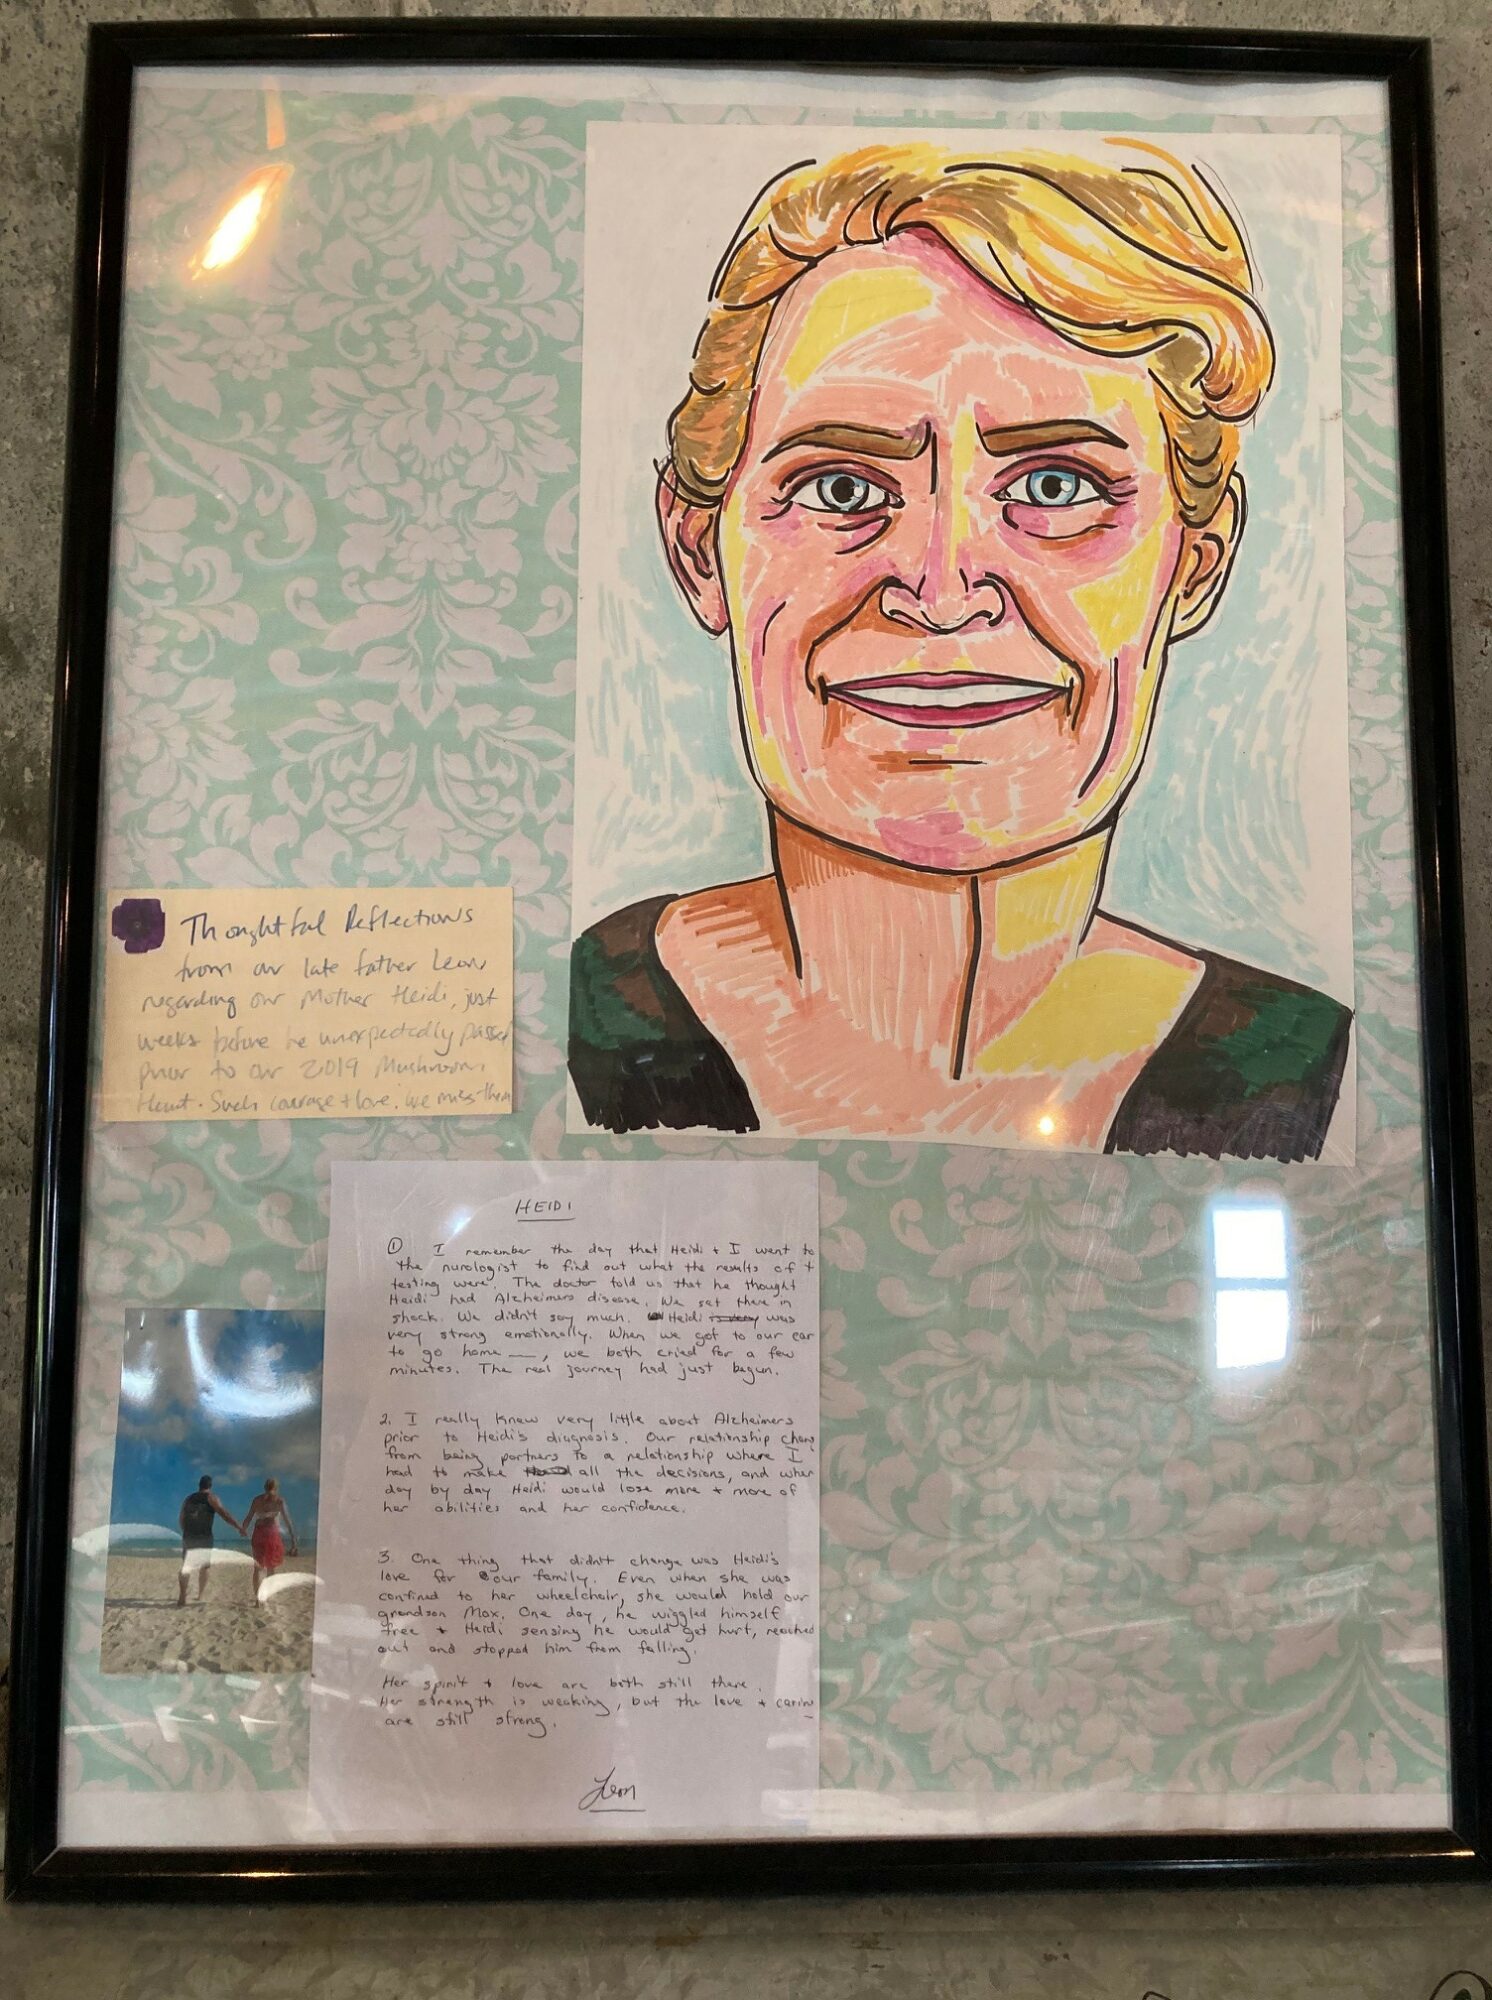 Thoughtful Reflections
from our late father Leon
regarding our Mother Heidi, just
weeks before he unexpectedly passed
prior to our 2019 Mushroom
Heart. Such courage + love. We miss them
HEIDI
① I remember the day that Heidi + I went to
the nurologist to find out what the results of
testing were. The doctor told us that he thought
Heidi had Alzheimers disease. We sat there in
shock. We didn't say much. Heidi was
very strong emotionally. When we got to our car
to go home —, we both cried for a few
minutes. The real journey had just begun.
2. I really knew very little about Alzheimers
prior to Heidi's diagnosis. Our relationship chang
from being partners to a relationship where I
had to make all the decisions, and when
day by day Heidi would lose more + more of
her abilities and her confidence.
3. One thing that didn't change was Heidi's
love for our family. Even when she was
confined to her wheelchair, she would hold our
grandson Max. One day, he wiggled himself
free + Heidi sensing he would get hurt, reached
out and stopped him from falling.
Her spirit + love are both still there.
Her strength is weaking, but the love + carin
are still strong.
Leon